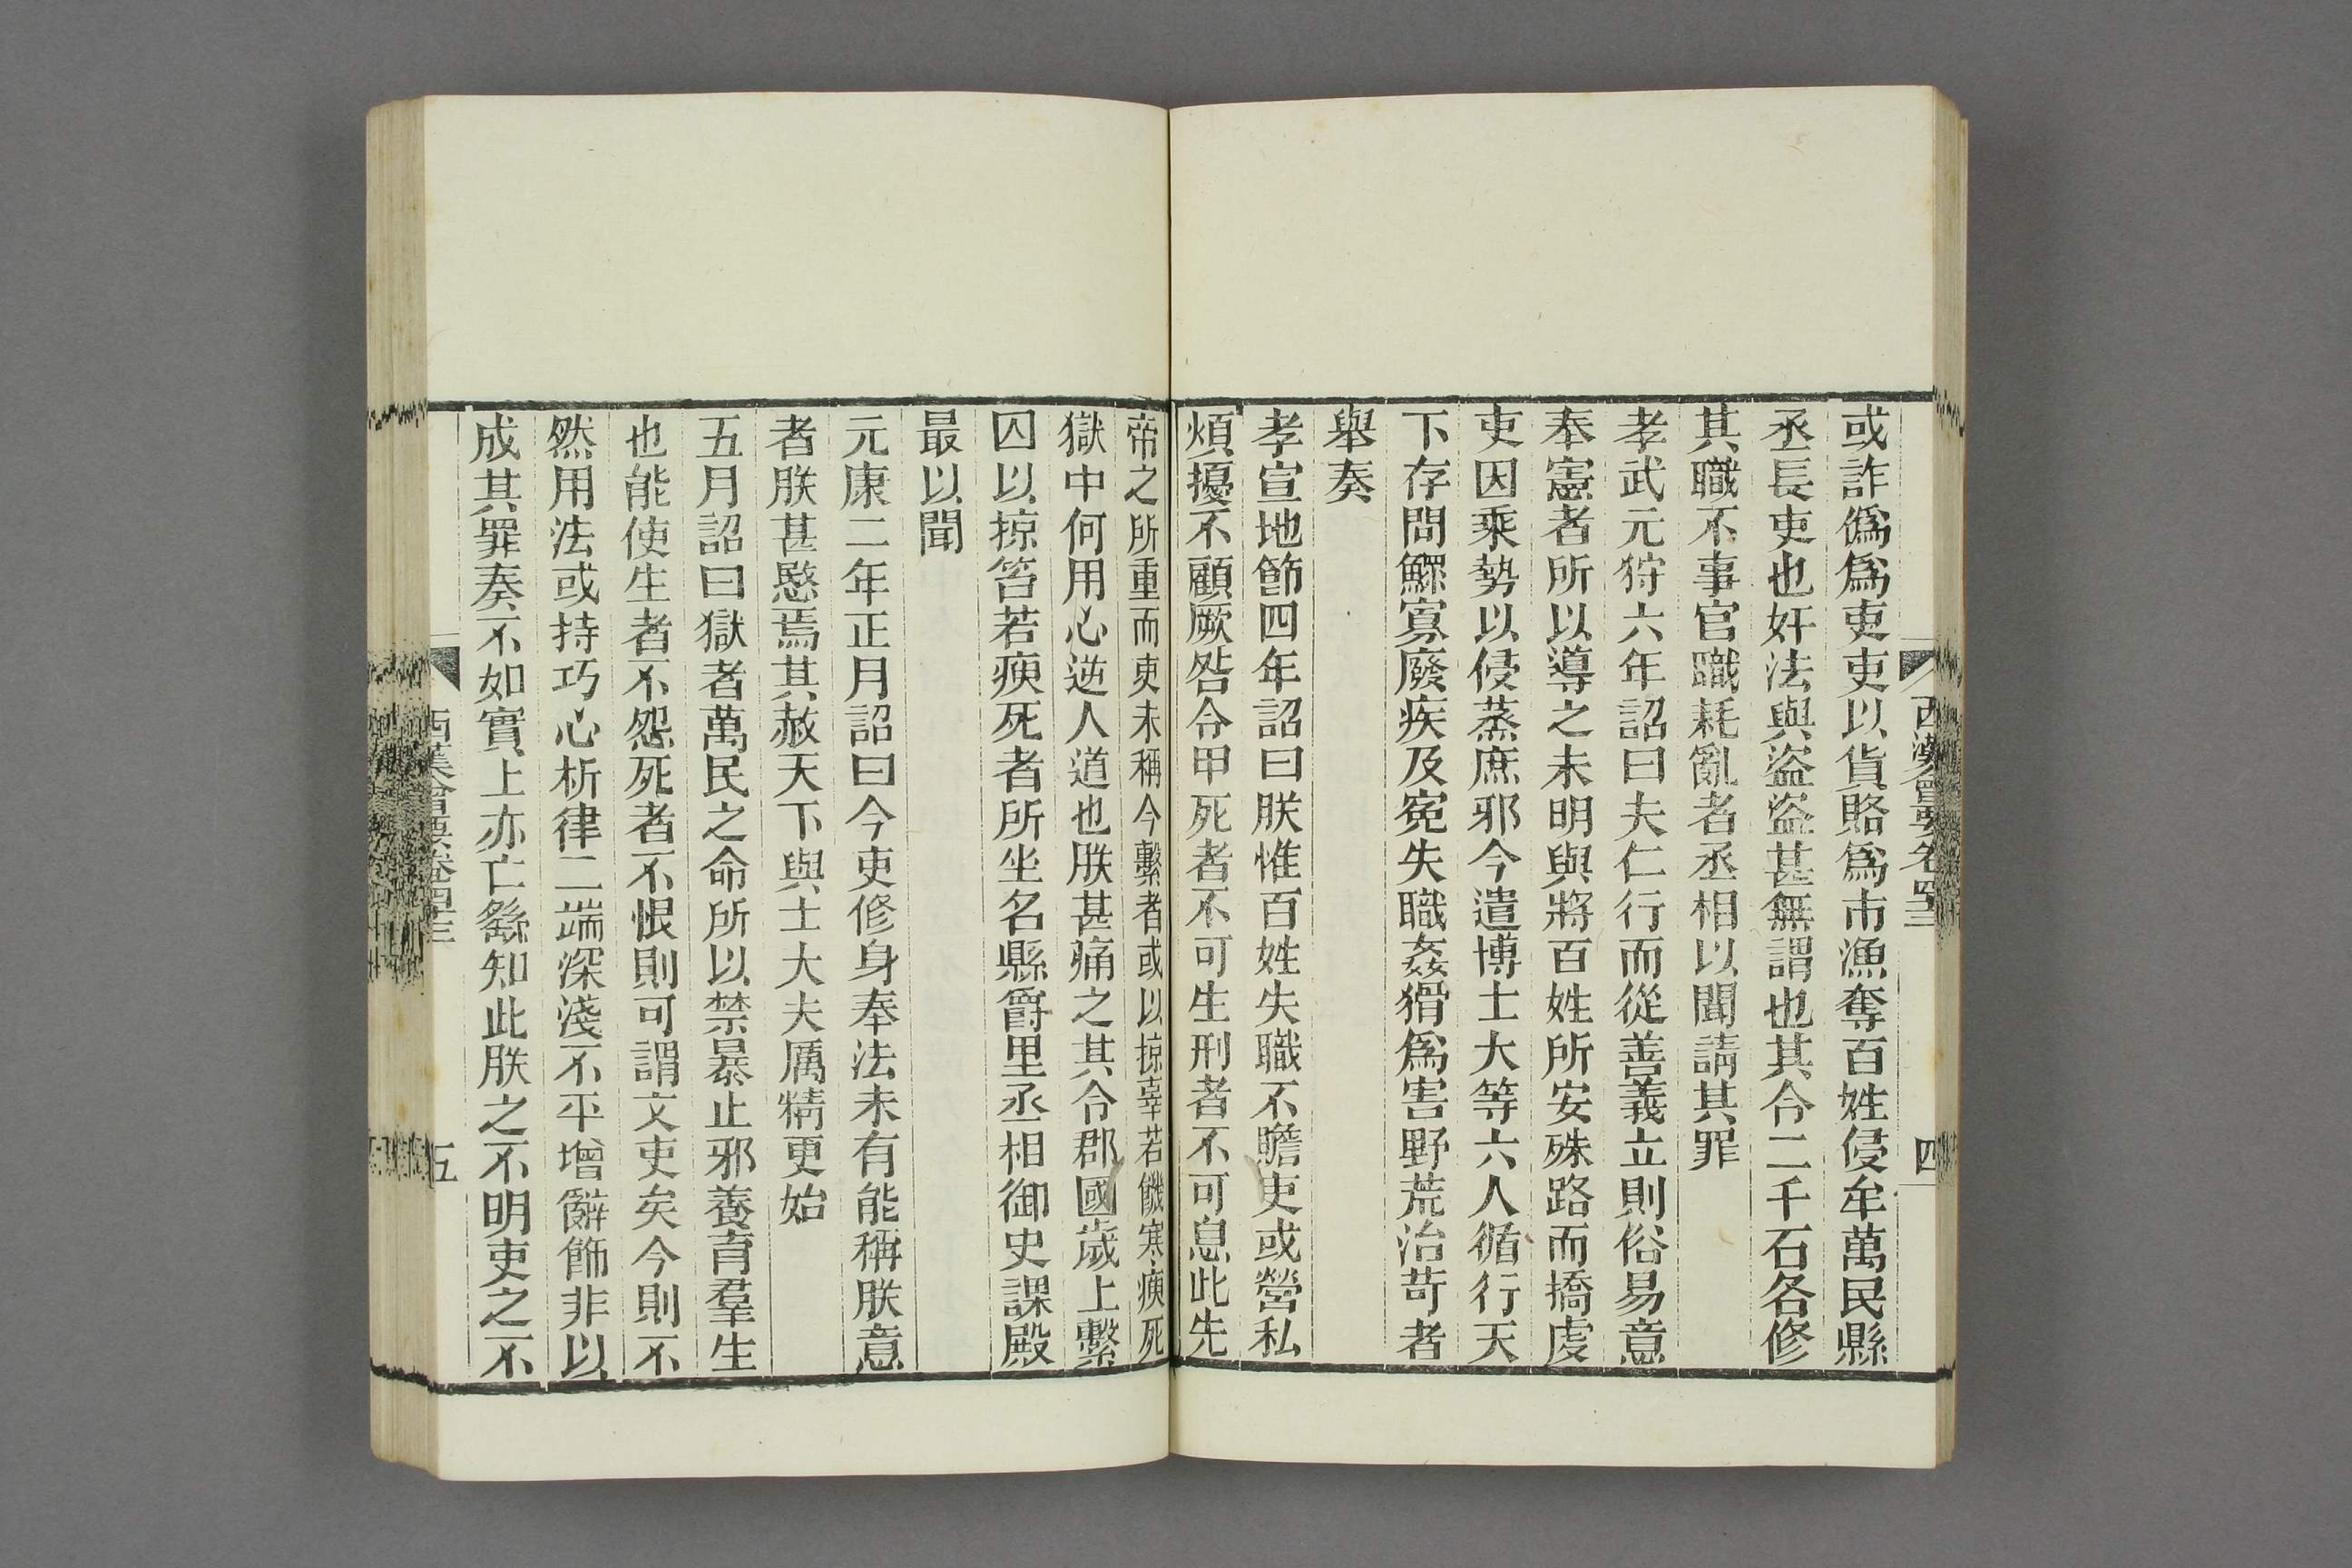 西漢會要卷四十三
四
或詐僞爲吏吏以貨賂爲市漁奪百姓侵牟萬民縣
丞長吏也奸法與盜盜甚無謂也其令二千石各修
其職不事官職耗亂者丞相以聞請其罪
孝武元狩六年詔曰夫仁行而從善義立則俗易意
奉憲者所以導之未明與將百姓所安殊路而撟虔
吏因乘勢以侵蒸庶邪今遣博士大等六人循行天
下存問鰥寡廢疾及寃失職姦猾爲害野荒治苛者
舉奏
孝宣地節四年詔曰朕惟百姓失職不贍吏或營私
煩擾不顧厥咎令甲死者不可生刑者不可息此先
帝之所重而吏未稱今繫者或以掠辜若饑寒瘐死
獄中何用心逆人道也朕甚痛之其令郡國歲上繫
囚以掠笞若瘐死者所坐名縣爵里丞相御史課殿
最以聞
元康二年正月詔曰今吏修身奉法未有能稱朕意
者朕甚愍焉其赦天下與士大夫厲精更始
五月詔曰獄者萬民之命所以禁暴止邪養育羣生
也能使生者不怨死者不恨則可謂文吏矣今則不
然用法或持巧心析律二端深淺不平增辭飾非以
成其罪奏不如實上亦亡繇知此朕之不明吏之不
西漢會要卷四十三
五